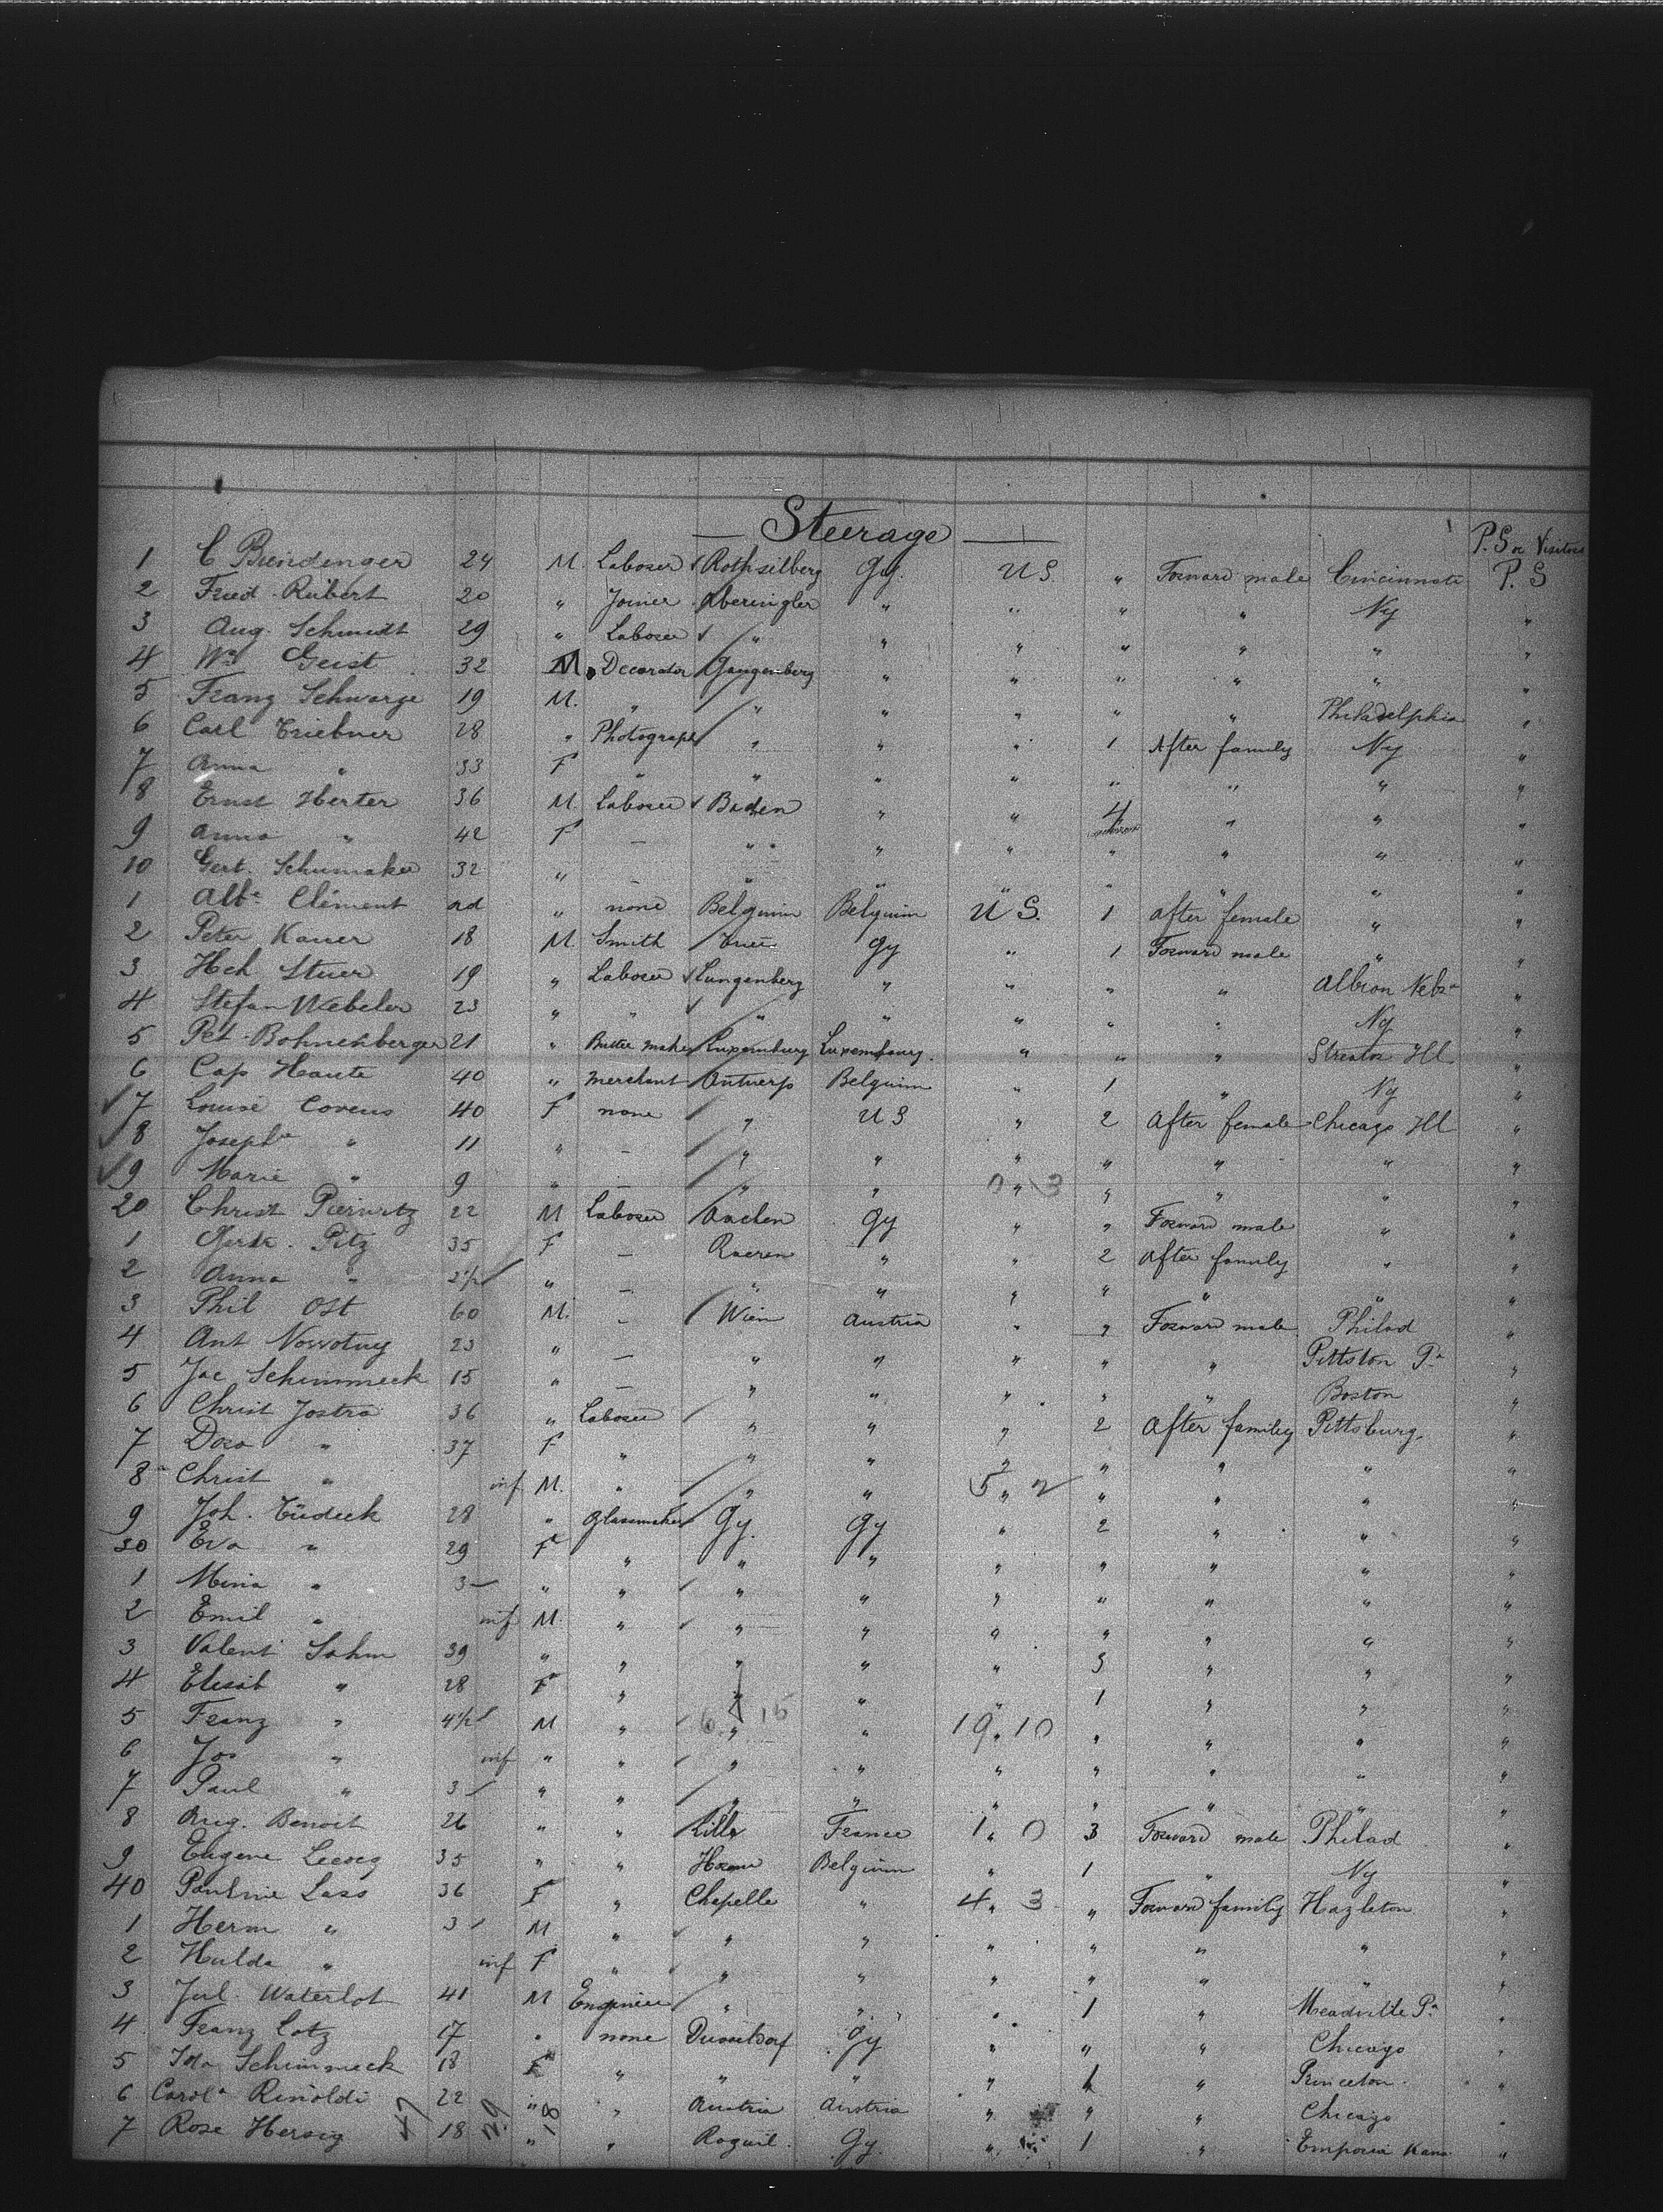 Steerage
P.S or Visitors
1 C Bundenger 24 M. Laborer Rothselberg Gy. U S. " Forward male Cincinnati P. S
2 Fried. Rubert 20 " Joiner " " " " Ny "
3 Aug. Schmidt 29 " Laborer " " " " " " "
4 Wm Geist 32 M. Decorator Gangenberg " " " " " "
5 Franz Schwarze 19 M. " " " " " " Philadelphia "
6 Carl Triebner 28 " Photograph " " " 1 After family Ny "
7 Anna " 33 F " " " " " " " "
8 Ernst Herter 36 M. Laborer Baden " " 4 " " "
9 Anna " 42 F - " " " " " " "
10 Gert. Schumaker 32 " - " " " " " " "
1 Albe Clement ad " none Belguim Belguim U S. 1 After female " "
2 Peter Kauer 18 M. Smith Gy " 1 Forward male " "
3 Hch Stuer 19 " Laborer Lungenberg " " " " Albion Neba "
4 Stefan Webeler 23 " " " " " " " Ny "
5 Pet. Bohnenberger 21 " Butter maker Luxemburg Luxembourg. " " " Streator Ill "
6 Cap Haute 40 " Merchant Antwerp Belguim " 1 " Ny "
7 Louise Covens 40 F none " U S " 2 After female Chicago Ill "
8 Josepha " 11 " - " " " " " " "
9 Marie " 9 " - " " " " " " "
20 Christ Pierwitz 22 M Laborer Aachen Gy " " Forward male " "
1 Gertr. Pitz 35 F - Raeren " " 2 After family " "
2 Anna " 2½ " - " " " " " " "
3 Phil Ost 60 M. - Wien Austria " " Forward male Philad "
4 Ant Nowotny 23 " - " " " " " Pittston Pa "
5 Jac Schimmeck 15 " - " " " " " Boston "
6 Christ Jostra 36 " Laborer " " " 2 After family Pittsburg. "
7 Dora " 37 F " " " " " " " "
8 Christ " inf M. " " " 5 " 2 " " " "
9 Joh. Tüdeck 28 " Glassmaker Gy. Gy " 2 " " "
30 Eva " 29 F " " " " " " " "
1 Mina " 3 " " " " " " " " "
2 Emil " inf M. " " " " " " " "
3 Valent Sahm 39 " " " " " 3 " " "
4 Elisab " 28 F " " " " 1 " " "
5 Franz " 4½ M " 6 " 15 " 19 " 10 " " " "
6 Jos " inf " " " " " " " " "
7 Paul " 3 " " " " " " " " "
8 Aug. Benoit 26 " " Lille France 1 " 0 3 Forward male Philad "
9 Eugene Lecocq 35 " " Belguim " 1 " Ny "
40 Pauline Lass 36 F " Chapelle " 4 " 3 " Forward family Hazleton "
1 Herm " 3 M " " " " " " " "
2 Hulda " inf F " " " " " " " "
3 Jul. Waterlot 41 M Engineer " " " 1 " Meadville Pa "
4 Franz Lotz 17 " none Dusseldorf Gy " " " Chicago "
5 Ida Schimmeck 18 F " " " " 1 " Princeton. "
6 Carola Rinoldi 22 " " Austria Austria " " " Chicago "
7 Rose Hersig 47 18 29 " 18 " Gy. " 1 " Emporia Kans "